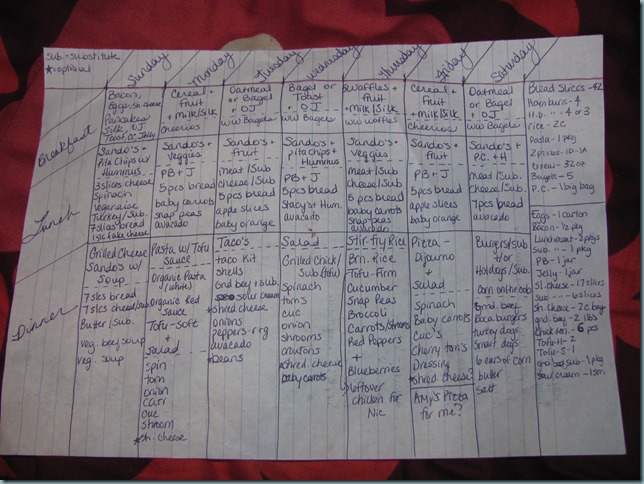 sub. = substitute
★ = optional
Sunday
Monday
Tuesday
Wednesday
Thursday
Friday
Saturday
Breakfast
Bacon,
Eggs, sh cheese
Pancakes
Silk, OJ
Toast w/ Jelly
Cereal +
fruit
+ milk/silk
Cheerios
Oatmeal
or Bagel
+ OJ
ww Bagels
Bagel or
Toast
+ OJ
ww Bagels
Waffles +
fruit
+ milk/silk
ww waffles
Cereal +
fruit
+ milk/silk
Cheerios
Oatmeal or
Bagel
+ OJ
ww Bagels
Lunch
Sando's +
Pita Chips w/
Hummus
3 slices cheese
Spinach
Vegenaise
Turkey/Sub.
7 slices bread
Sando's +
Veggies
PB + J
5 pcs bread
baby carrots
snap peas
avacado
Sando's +
fruit
meat/sub
cheese/sub
5 pcs bread
apple slices
baby orange
Sando's +
pita chips +
Hummus
PB + J
5 pcs bread
Stacy's + Hum.
avacado
Sando's +
Veggies
meat/sub
Cheese/sub
5 pcs bread
baby carrots
snap peas
avacado
Sando's +
fruit
PB + J
5 pcs bread
apple slices
baby orange
Sando's +
P.C. + H
meat/sub.
Cheese/sub.
7 pcs bread
avacado
Dinner
Grilled Cheese
Sando's w/
Soup
7 slcs bread
7 slcs cheese/sub
Butter/sub.
veg. beef soup
veg. soup
Pasta w/ Tofu
Sauce
Organic Pasta
(white)
Organic Red
Sauce
Tofu-Soft
+
Salad
Spin
tom
onion
carr
cuc
shroom
★ sh. cheese
Taco's
taco kit
shells
Gnd beef + sub.
sour cream
★ shred cheese
onions
peppers - r+g
avacado
★ beans
Salad
Grilled Chick/
Sub (tofu)
spinach
tom's
cuc
onion
shrooms
croutons
★ shred. cheese
baby carots
Stir-fry Rice
Brn. Rice
Tofu-Firm
Cucumber
Snap Peas
Broccoli
Carrots/Shrooms
Red Peppers
+
Blueberries
leftover
chicken for
Nic
Pizza -
DiJourno
+
Salad
Spinach
Baby carrots
Cuc's
Cherry tom's
Dressing
★ shred cheese?
Amy's Pizza
for me?
Burgers/sub
+/or
Hotdogs/sub.
Corn on the cob
Grnd. beef
Boca burgers
turkey dogs
Smart dogs
6 ears of corn
butter
salt
Bread Slices - 42
Ham buns - 4
H.D. " - 4 or 3
rice - 2c
Pasta - 1 pkg
cereal - 32oz
Bagels - 5
P.C. - 1 big bag
Eggs - 1 carton
Bacon - 1/2 pkg
Lunchmeat - 2 pkgs
Sub. " - 1 pkg
PB - 1 jar
Jelly - 1 jar
Sl. cheese - 17 slices
Sub - 6 slices
Sh. cheese - 2c bag
grd. beef - 2 lbs
Chicken - 6 pcs
Tofu-H - 2
Tofu-S - 1
grd beef sub - 1 pkg
sour cream - 1 sm